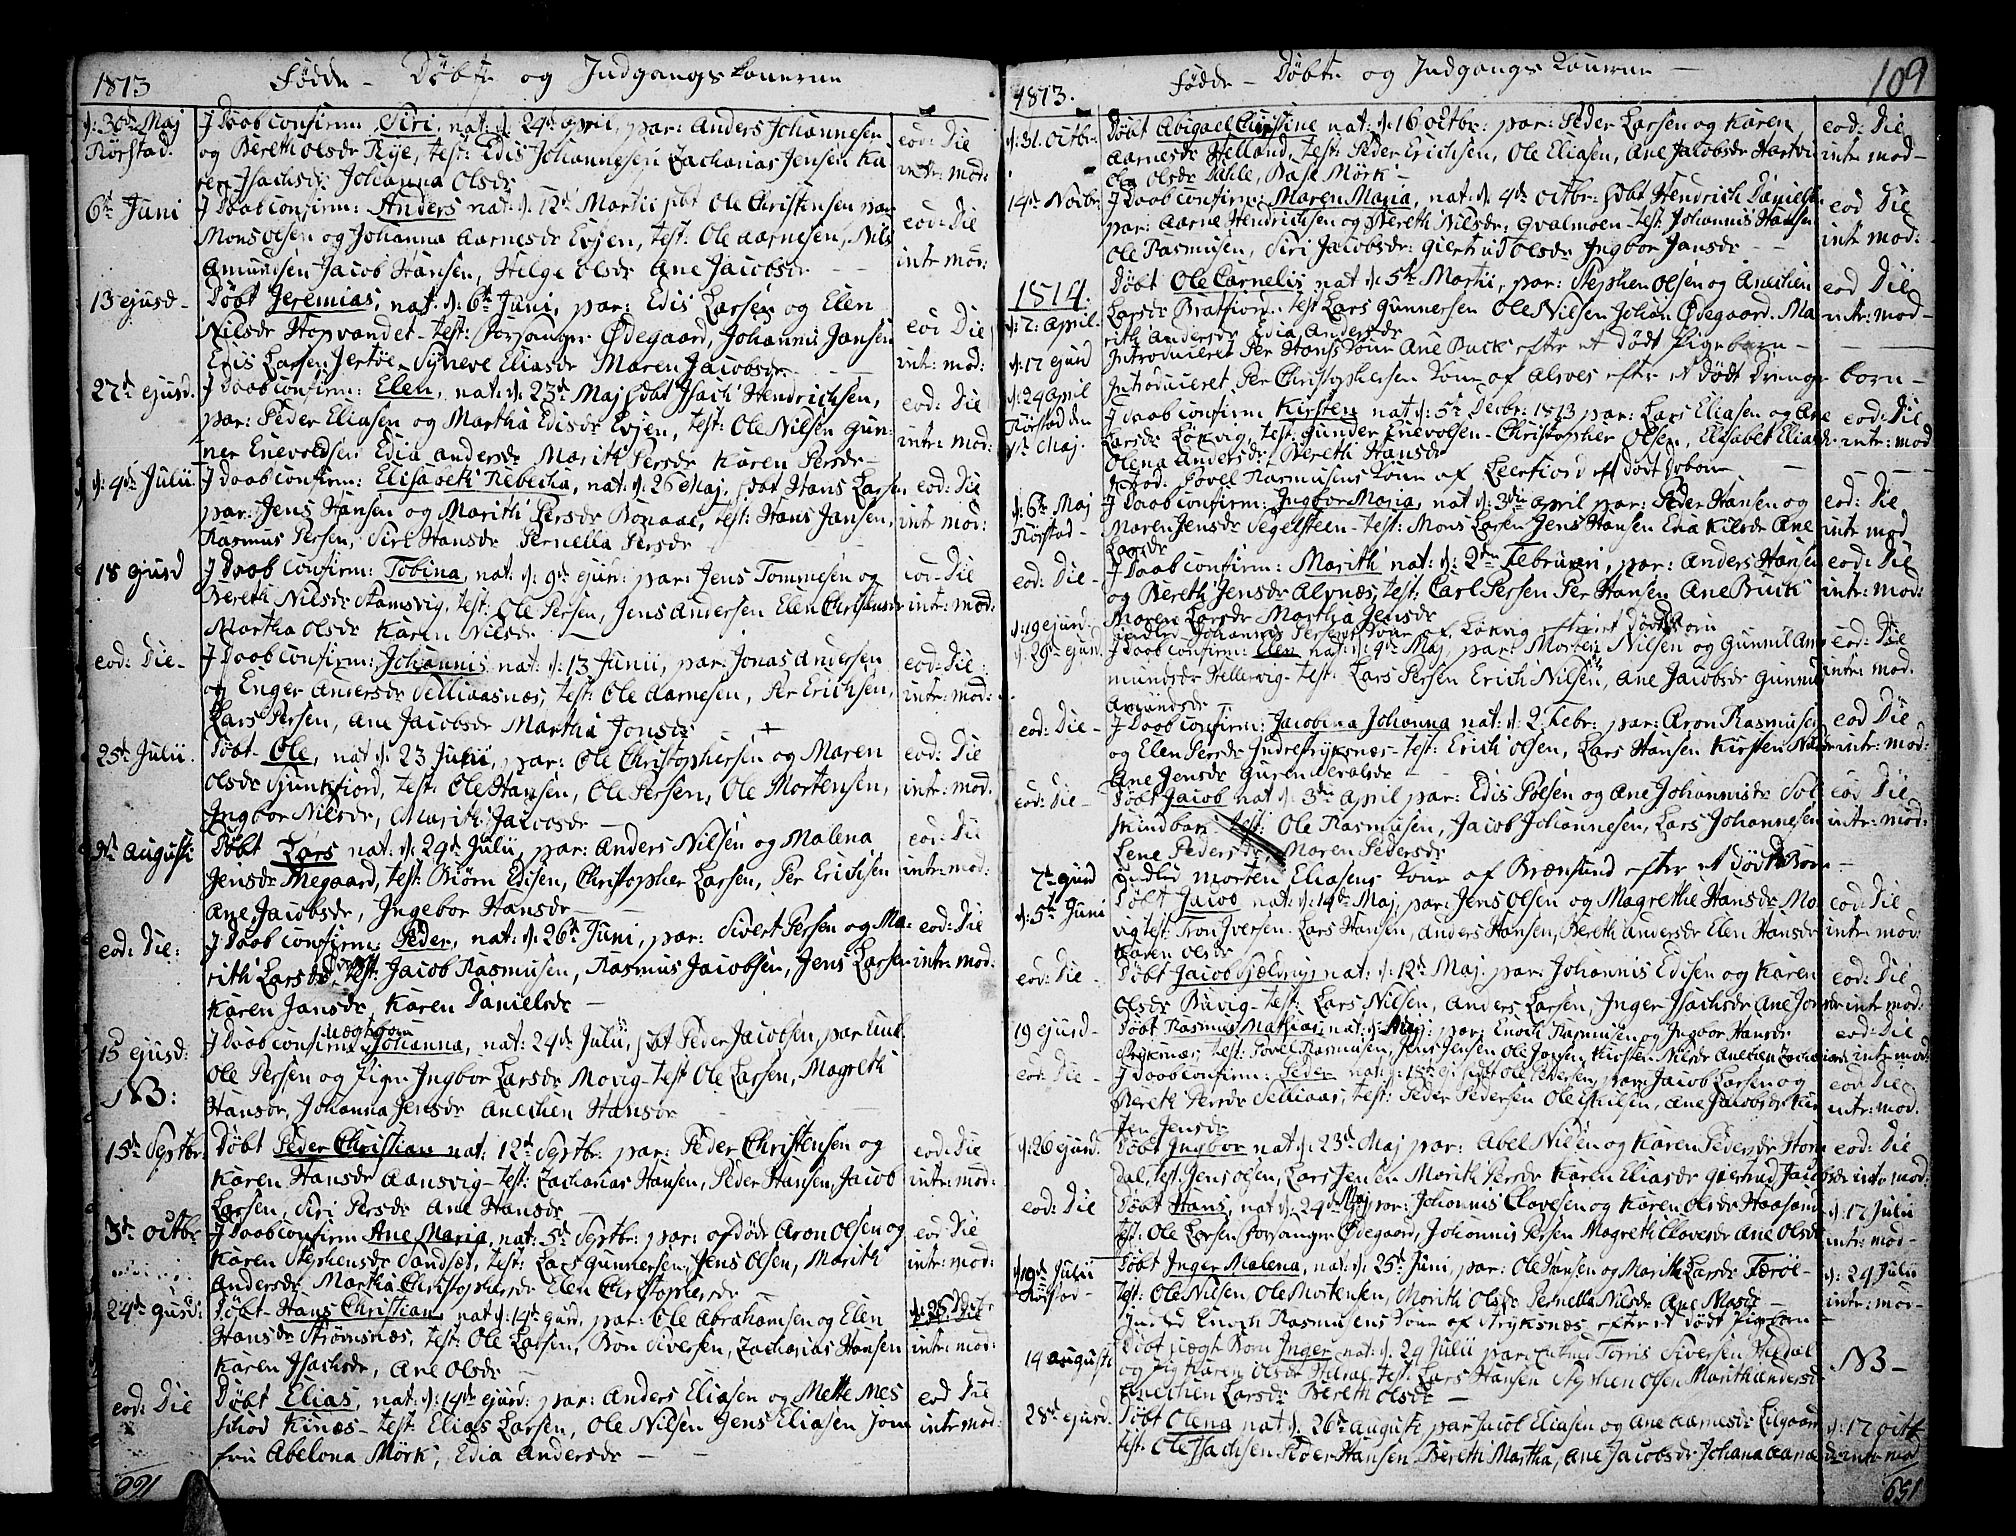 1813 Fødde - Døbte og Indgangs Konerne
d: 30de Maj J Daab confirm: Siri, nat: d: 24de april, par: Anders Johannesen
Rørstad. og Bereth Olsdr Rye, test: Edis Johannesen Zacharias Jensen Ka
eod: Die
intr: mod:
ren Isachsdr Johanna Olsdr
6te Juni J Daab confirm: Anders nat: d: 12te Martii ... Ole Christensen par
Mons Olsen og Johanna Aarnesdr Evjen, test: Ole Aarnesen, Nils
eod: Die
Amundsen Jacob Hansen, Helge Olsdr Ane Jacobsdr
intr: mod:
13 ejusd - Døbt Jeremias, nat: d: 6te Juni, par: Edis Larsen og Elen
Nilsdr Stopvandet - test: Forsanger Ødegaard, Johannis Jansen
eod: Die
Edis Larsen Jertøe, Synneve Eliasdr Maren Jacobsdr
intr: mod:
27de ejusd. J Daab confirm: Elen, nat: d: 23de Maj ... Isach Hendrichsen,
eod: Die
par: Peder Eliasen og Martha Edisdr Evjen, test: Ole Nilsen Gun-
intr: mod:
ner Enevoldsen Edia Andersdr Marith Persdr Karen Persdr -
d: 4de Julii J Daab confirm: Elisabeth Rebecha, nat: d: 26 Maj, ... Hans Larsen
eod: Die
par: Jens Hansen og Marith Persdr Bonaae, test: Hans Jansen,
intr: mod:
Rasmus Persen, Siri Hansdr Pernella Persdr -
18 ejusd J Daab confirm: Tobina, nat: d: 9de ejusd: par: Jens Tommesen og
eod: Die
Bereth Nilsdr Stamsvig, test: Ole Persen, Jens Andersen Elen Christensdr
intr: mod:
Martha Olsdr Karen Nilsdr
eod: Die - J Daab confirm: Johannis, nat: d: 13 Junii, par: Jonas Andersen
eod: Die:
og Enger Andersdr Selliaasnæs, test: Ole Aarnesen, Per Erichsen,
intr: mod:
Lars Persen, Ane Jacobsdr Martha Jonsdr
25de Julii. Døbt - Ole, nat d: 23 Julii, par: Ole Christophersen og Maren
eod: Die
Olsdr Sjunkfiord, test: Ole Hansen, Ole Persen, Ole Mortensen,
intr: mod.
Ingbor Nilsdr, Marith Jacobsdr
Augusti Døbt Lars nat: d: 29de Julii, par: Anders Nilsen og Malena
eod: Die
Jensdr ..., test: Biørn Edisen, Christopher Larsen, Per Erichsen
intr: mod:
Ane Jacobsdr, Ingebor Hansdr
eod: Die: J Daab confirm: Peder, nat: d: 26de Juni, par: Sivert Persen og Ma-
eod: Die
rith Larsdr, test: Jacob Rasmusen, Rasmus Jacobsen, Jens Larsen
intr: mod:
Karen Jansdr Karen Danielsdr -
15 ejusd: J Daab confirm: uægte Johanna, nat: 24de Julii, ... Peder Jacobsen, par:
NB: Ole Persen og Pige Ingbor Larsdr Movig - test Ole Larsen, Magreth
Hansdr, Johanna Jensdr Anechien Hansdr
15de Septbr: Døbt Peder Christian nat: 12te Septbr: par: Peder Christensen og
eod: Die
Karen Hansdr Aansvig - test: Zacharias Hansen, Peder Hansen, Jacob
intr: mod:
Larsen, Siri Persdr Ane Hansdr
3de Octbr J Daab confirm Ane Maria, nat: 5te Septbr: par: afdøde Aron Olsen og
eod: Die
Karen Stephensdr Sandsæt, test: Lars Gunnersen, Jens Olsen, Marith
intr: mod:
Andersdr Martha Christophersdr Elen Christophersdr
24de ejusd: Døbt - Hans Christian, nat d: 14de ejusd, par: Ole Abrahamsen og Elen
Hansdr Strømsnæs, test: Ole Larsen, Bon Iversen, Zacharias Hansen
intr: mod:
Karen Isachsdr, Ane Olsdr
eod: Die Døbt Elias, nat: d: 14de ejusd: par: Anders Eliasen og Mette Mes
eod Die
schiød Kinæs - test: Elias Larsen, Ole Nilsen Jens Eliasen Jom
intr: mod:
fru Abelona Mørk, Edia Andersdr -
160
1813. Fødde - Døbte og Indgangs Konerne - 109
d: 31. Octbr. Døbt Abigael Christine nat: d: 16 Octbr: par: Peder Larsen og Karen
eod: Die
Aarnesdr Helland, test: Peder Erichsen, Ole Eliasen, Ane Jacobsdr
intr: mod -
Olsdr Dahle, Mørk -
14de Novbr. J Daab confirm: Maren Maria, nat: d: 4de Octbr: ... Hendrich Danielsen
eod Die
par: Aarne Hendrichsen og Bereth Nilsdr: Qvalmoen - test: Johannis Hansen
intr: mod: -
Ole Rasmusen, Siri Jacobsdr: Giertrud Olsdr Ingbor Jansdr
1814. Døbt Ole Cornelis nat d: 5te Martii, par: Stephen Olsen og Anechien
eod Die
d: 2. April. Larsdr Bratfiord - test Lars Gunnersen Ole Nilsen Johan Ødegaard. Ma
intr: mod -
rith Andersdr Edia Andersdr
d: 17 ejusd Introduceret Per Hans Kone Ane Buck efter et dødt Pigebarn -
d: 24 April Introduceret Per Christophersen Kone af Alsves efter et dødt Drenge barn -
Rørstad den J Daab confirm Kirsten nat: d: 5te Decbr: 1813 par: Lars Eliasen og Ane
eod: Die
1ste Maj. Larsdr Løkvig, test: Gunder Enevolsen - Christopher Olsen Elisabet Eliasdr
intr: mod
Olena Andersdr Bereth Hansdr
Introd: Povel Rasmusens Kone af Leerfiord eft dødt
d: 6te Maj J Daab confirm: Ingbor Maria, nat d: 3die April par: Peder Hansen og
eod: Die
Rørstad - Maren Jensdr Segelsteen - test: Mons Larsen Jens Hansen Edia Nilsdr Ane
intr: mod
Larsdr
eod: Die - J Daab confirm: Marith nat: d: 2den Februari, par: Anders Hansen
eod: Die
og Bereth Jensdr Alvnes, test: Carl Persen Per Hansen Ane Buck
intr: mod:
Maren Larsdr Martha Jensdr
d: 19 ejusd Indled Johannis Persens Kone af Løkvig efter et Dødt Barn
d: 29de ejusd. J Daab confirm: Elen nat: d: 4de Maj par: Morten Nilsen og Gunnil Am
eod: Die
mundsdr Hellervig - test: Lars Persen Erich Nilsen, Ane Jacobsdr Gunnil
intr: mod.
Amundsdr
eod: Die - J Daab confirm: Jacobina Johanna nat: d: 2 Febr: par: Aron Rasmusen
eod Die
og Elen Persdr Indrestryksnæs - test: Erich Olsen, Lars Hansen Kirsten Nilsdr
intr: mod:
Ane Jensdr Guren
eod: Die - Døbt Jacob nat d: 3die April par: Edis Polsen og Ane Johannisdr Sol
eod Die
skindbak - test: Ole Rasmusen, Jacob Johannesen, Lars Johannesen
intr: mod:
Lene Pedersdr, Maren Pedersdr
7de ejusd Indled Morten Eliasens Kone af Brænsund efter et dødt Barn -
d: 5te Juni Døbt Jacob nat: d: 14de Maj, par: Jens Olsen og Magrethe Hansdr Mo
eod: Die -
vig test: Tron Iversen Lars Hansen, Anders Hansen, Bereth Andersdr Elen Hansdr
intr: mod:
Karen Olsdr
eod: Die - Døbt Jacob nat: d: 12te Maj. par: Johannis Edisen og Karen
eod: Die
Olsdr Buvig - test: Lars Nilsen, Anders Larsen, Inger Isachsdr Ane Jonsdr
intr: mod:
19 ejusd - Døbt Rasmus Mathias, nat: d: Maj: par: Enoch Rasmusen og Ingbor Hansdr
eod: Die
Stryksnæs, test: Povel Rasmusen, Jens Jensen Ole Jonsen, Kirsten Nilsdr Anechien Zachariasdr
intr: mod:
eod: Die - J Daab confirm: Peder nat: d: ... Ole Pedersen, par: Jacob Larsen og
eod: Die
Bereth Persdr Selliaas, test: Peder Pedersen Ole Nilsen, Ane Jacobsdr Kir
intr: mod.
sten Jensdr
d: 26 ejusd. Døbt Ingbor nat d: 23de Maj par: Abel Nilsen og Karen Pedersdr Storm
eod: Die
Dal, test: Jens Olsen, Lars Jensen Marith Persdr Karen Eliasdr Giertrud Jacobsdr
intr: mod:
eod: Die Døbt Hans, nat d: 24de Maj par: Johannis Clavesen og Karen Olsdr Haasand
d: 17 Julii
test: Ole Larsen Forsanger Ødegaard, Johannis Persen Magreth Clavesdr Ane Olsdr
intr: mod -
d: 19de Julii Døbt Inger Malena, nat: d: 25de Juni, par: Ole Hansen og Marith Larsdr Færøe -
d: 24 Julii
Rørstad - test: Ole Nilsen, Ole Mortensen, Marith Olsdr Pernella Nilsdr Ane Masdr
intr: mod -
Indled Enoch Rasmusens Kone af Stryksnæs efter et dødt Pigebarn -
14 Augusti Døbt uægte Barn Inger nat: d: 24 Julii par: Torris Sivertsen
NB -
og Pige Karen Olsdr test: Lars Hansen Stephen Olsen Marith Andersd
Anechien Larsdr Bereth Olsdr -
28de ejusd. Døbt Olena nat d: 26de Augusti par: Jacob Eliasen og Ane Aarnesdr Lilgaard
d: 17 Octb
test: Ole Isachsen Peder Hansen, Bereth Martha, Ane Jacobsdr Johana Aarnes
dr intr: mod
159